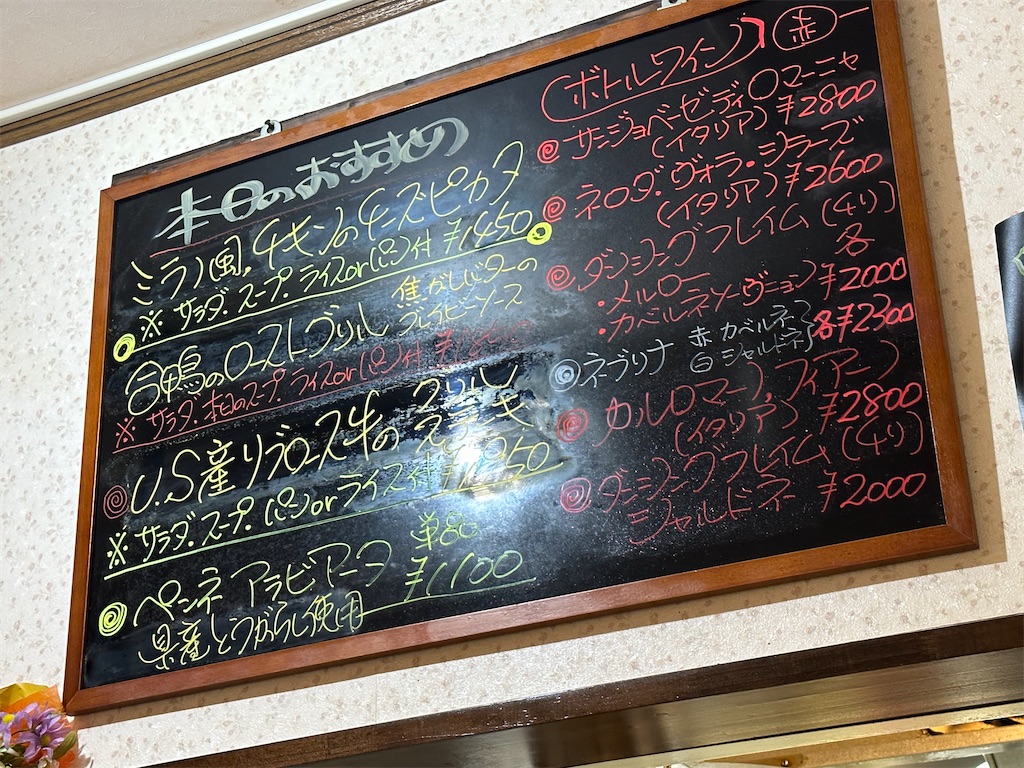 本日のおすすめ
ミラノ風、チキンのチーズピカタ
※ サラダ、スープ、ライスor パン付 ¥1450
合鴨のローストグリル 焦がしバターの
グレイビーソース
※ サラダ、本日のスープ、ライスor パン付
U.S産リブロース牛の グリル
ステーキ
※ サラダ、スープ、パンorライス付
ペンネ アラビアータ 単品
¥1100
県産とうがらし使用
(ボトルワイン) 赤
サンジョベーゼ ディ ロマーニャ
(イタリア) ¥2800
ネロダ・ヴォラ・シラーズ
(イタリア) ¥2600
ダンシングフレイム (チリ)
・メルロー 各
・カベルネソーヴィニョン ¥2000
ネブリナ 赤 カベルネ 各¥2300
白 シャルドネ
カルロマーノ、フィアーノ
(イタリア) ¥2800
ダンシングフレイム (チリ)
シャルドネ ¥2000